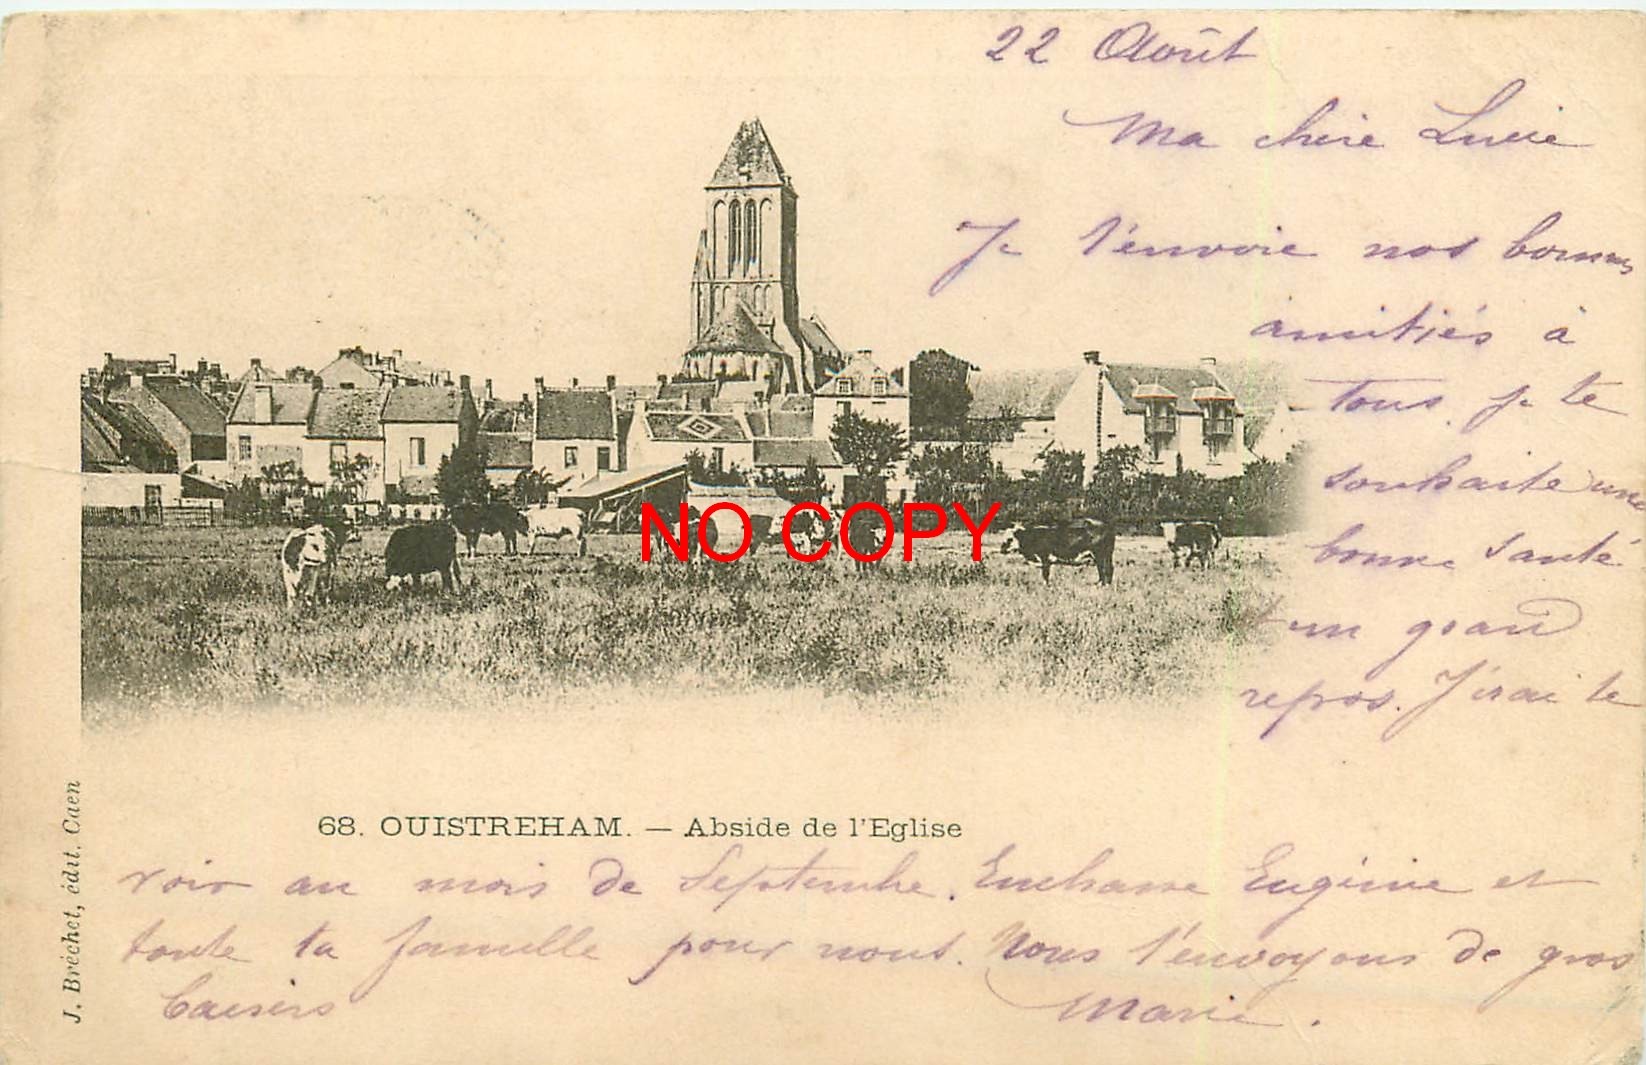 22 Août
Ma chère Lucie
Je t'envoie nos bonnes
amitiés à
tous. Je te
souhaite une
bonne santé
et un grand
repos. J'irai te
NO COPY
68. OUISTREHAM. — Abside de l'Eglise
voir au mois de Septembre. Embrasse Eugénie et
toute ta famille pour nous. Nous t'envoyons de gros
baisers
Marie.
J. Bréchet, édit. Caen